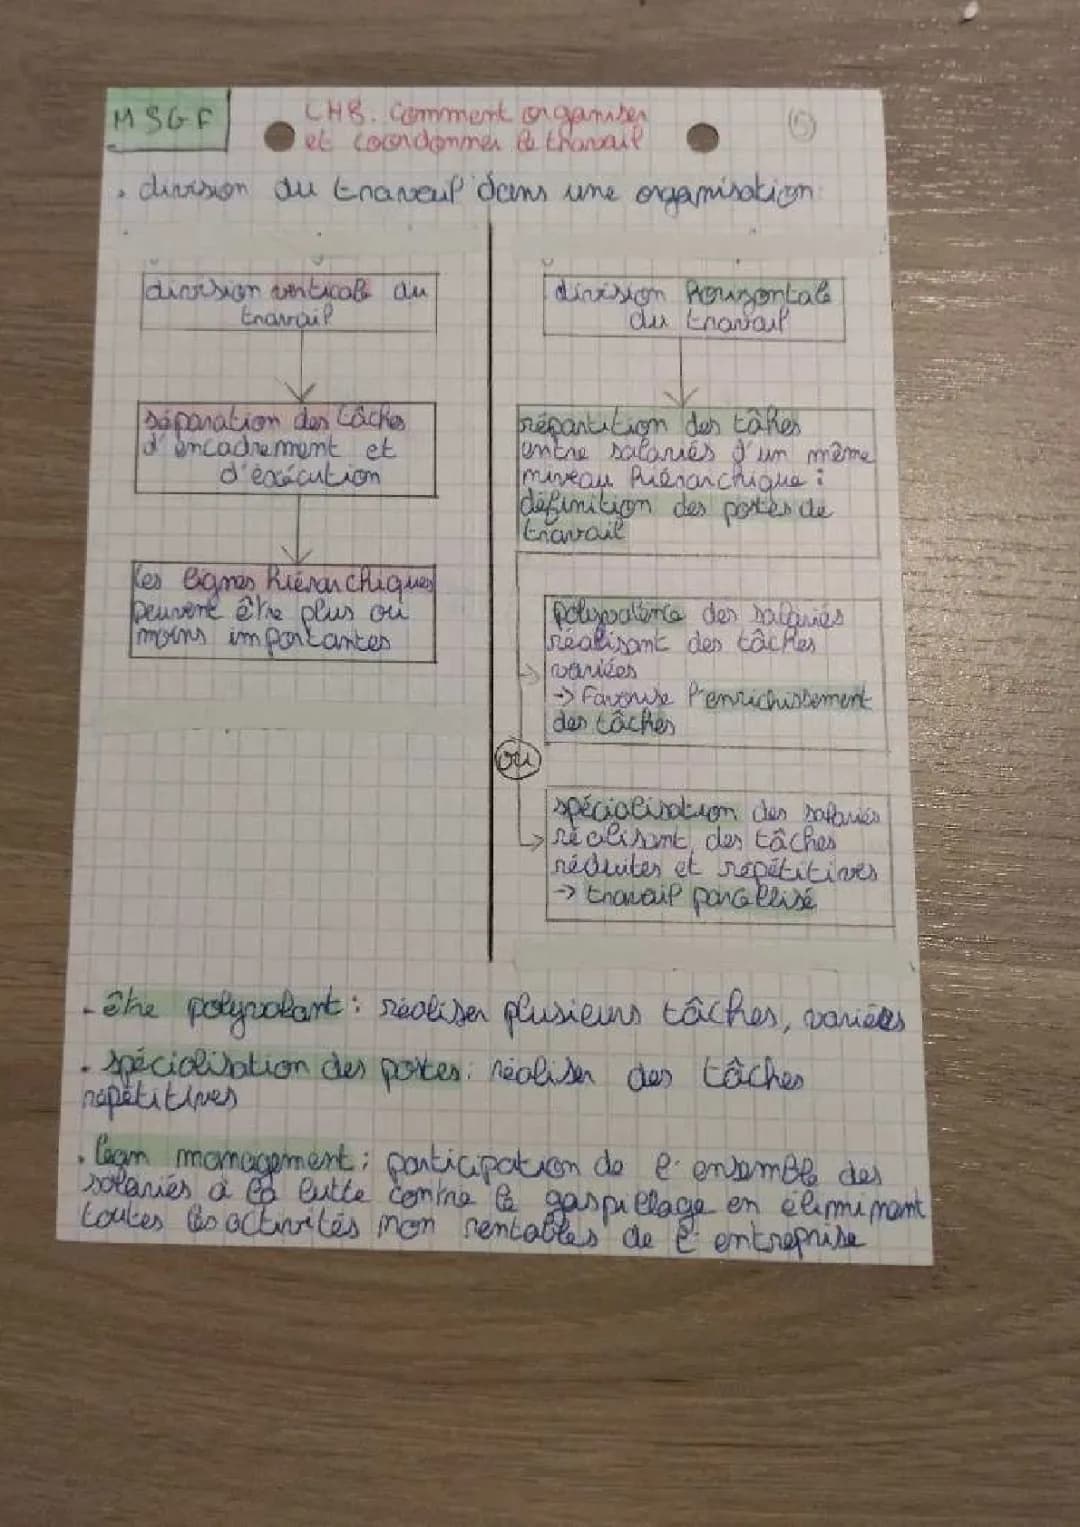 MSGF
CH8. Comment organiser
et coordonner le travail
(5)
. division du travail dans une organisation
division verticale du
travail
séparation des tâches
d'encadrement et
d'exécution
les lignes hiérarchiques
peuvent être plus ou
moins importantes
division horizontale
du travail
répartition des tâhes
entre salariés d'un même
niveau hiérarchique :
définition des postes de
travail
polyvalence des salariés
réalisant des tâches
variées
-> Favorise l'enrichissement
des tâches
ou
spécialisation des salariés
réalisant des tâches
réduites et répétitives
-> travail parcellisé
- être polyvalant : réaliser plusieurs tâches, variées
. spécialisation des postes : réaliser des tâches
répétitives
. lean management : participation de l'ensemble des
salariés à la lutte contre le gaspillage en éliminant
toutes les activités non rentables de l'entreprise